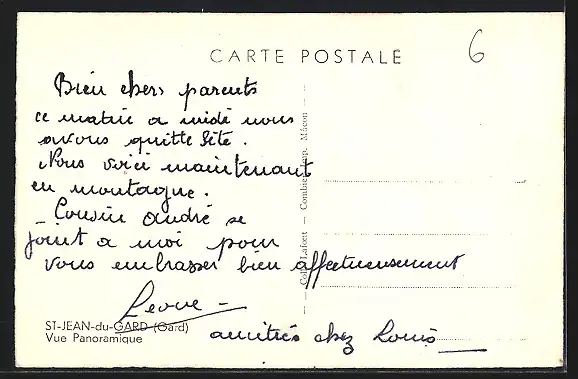 CARTE POSTALE
6
Bien chers parents
ce matin a midi nous
avons quitté Sète.
Nous voici maintenant
en montagne.
- Cousin André se
joint a moi pour
vous embrasser bien affectueusement
Leone -
amitiés chez Louis
ST-JEAN-du-GARD (Gard)
Vue Panoramique
Coll. Lafont - Combier Imp. Mâcon -